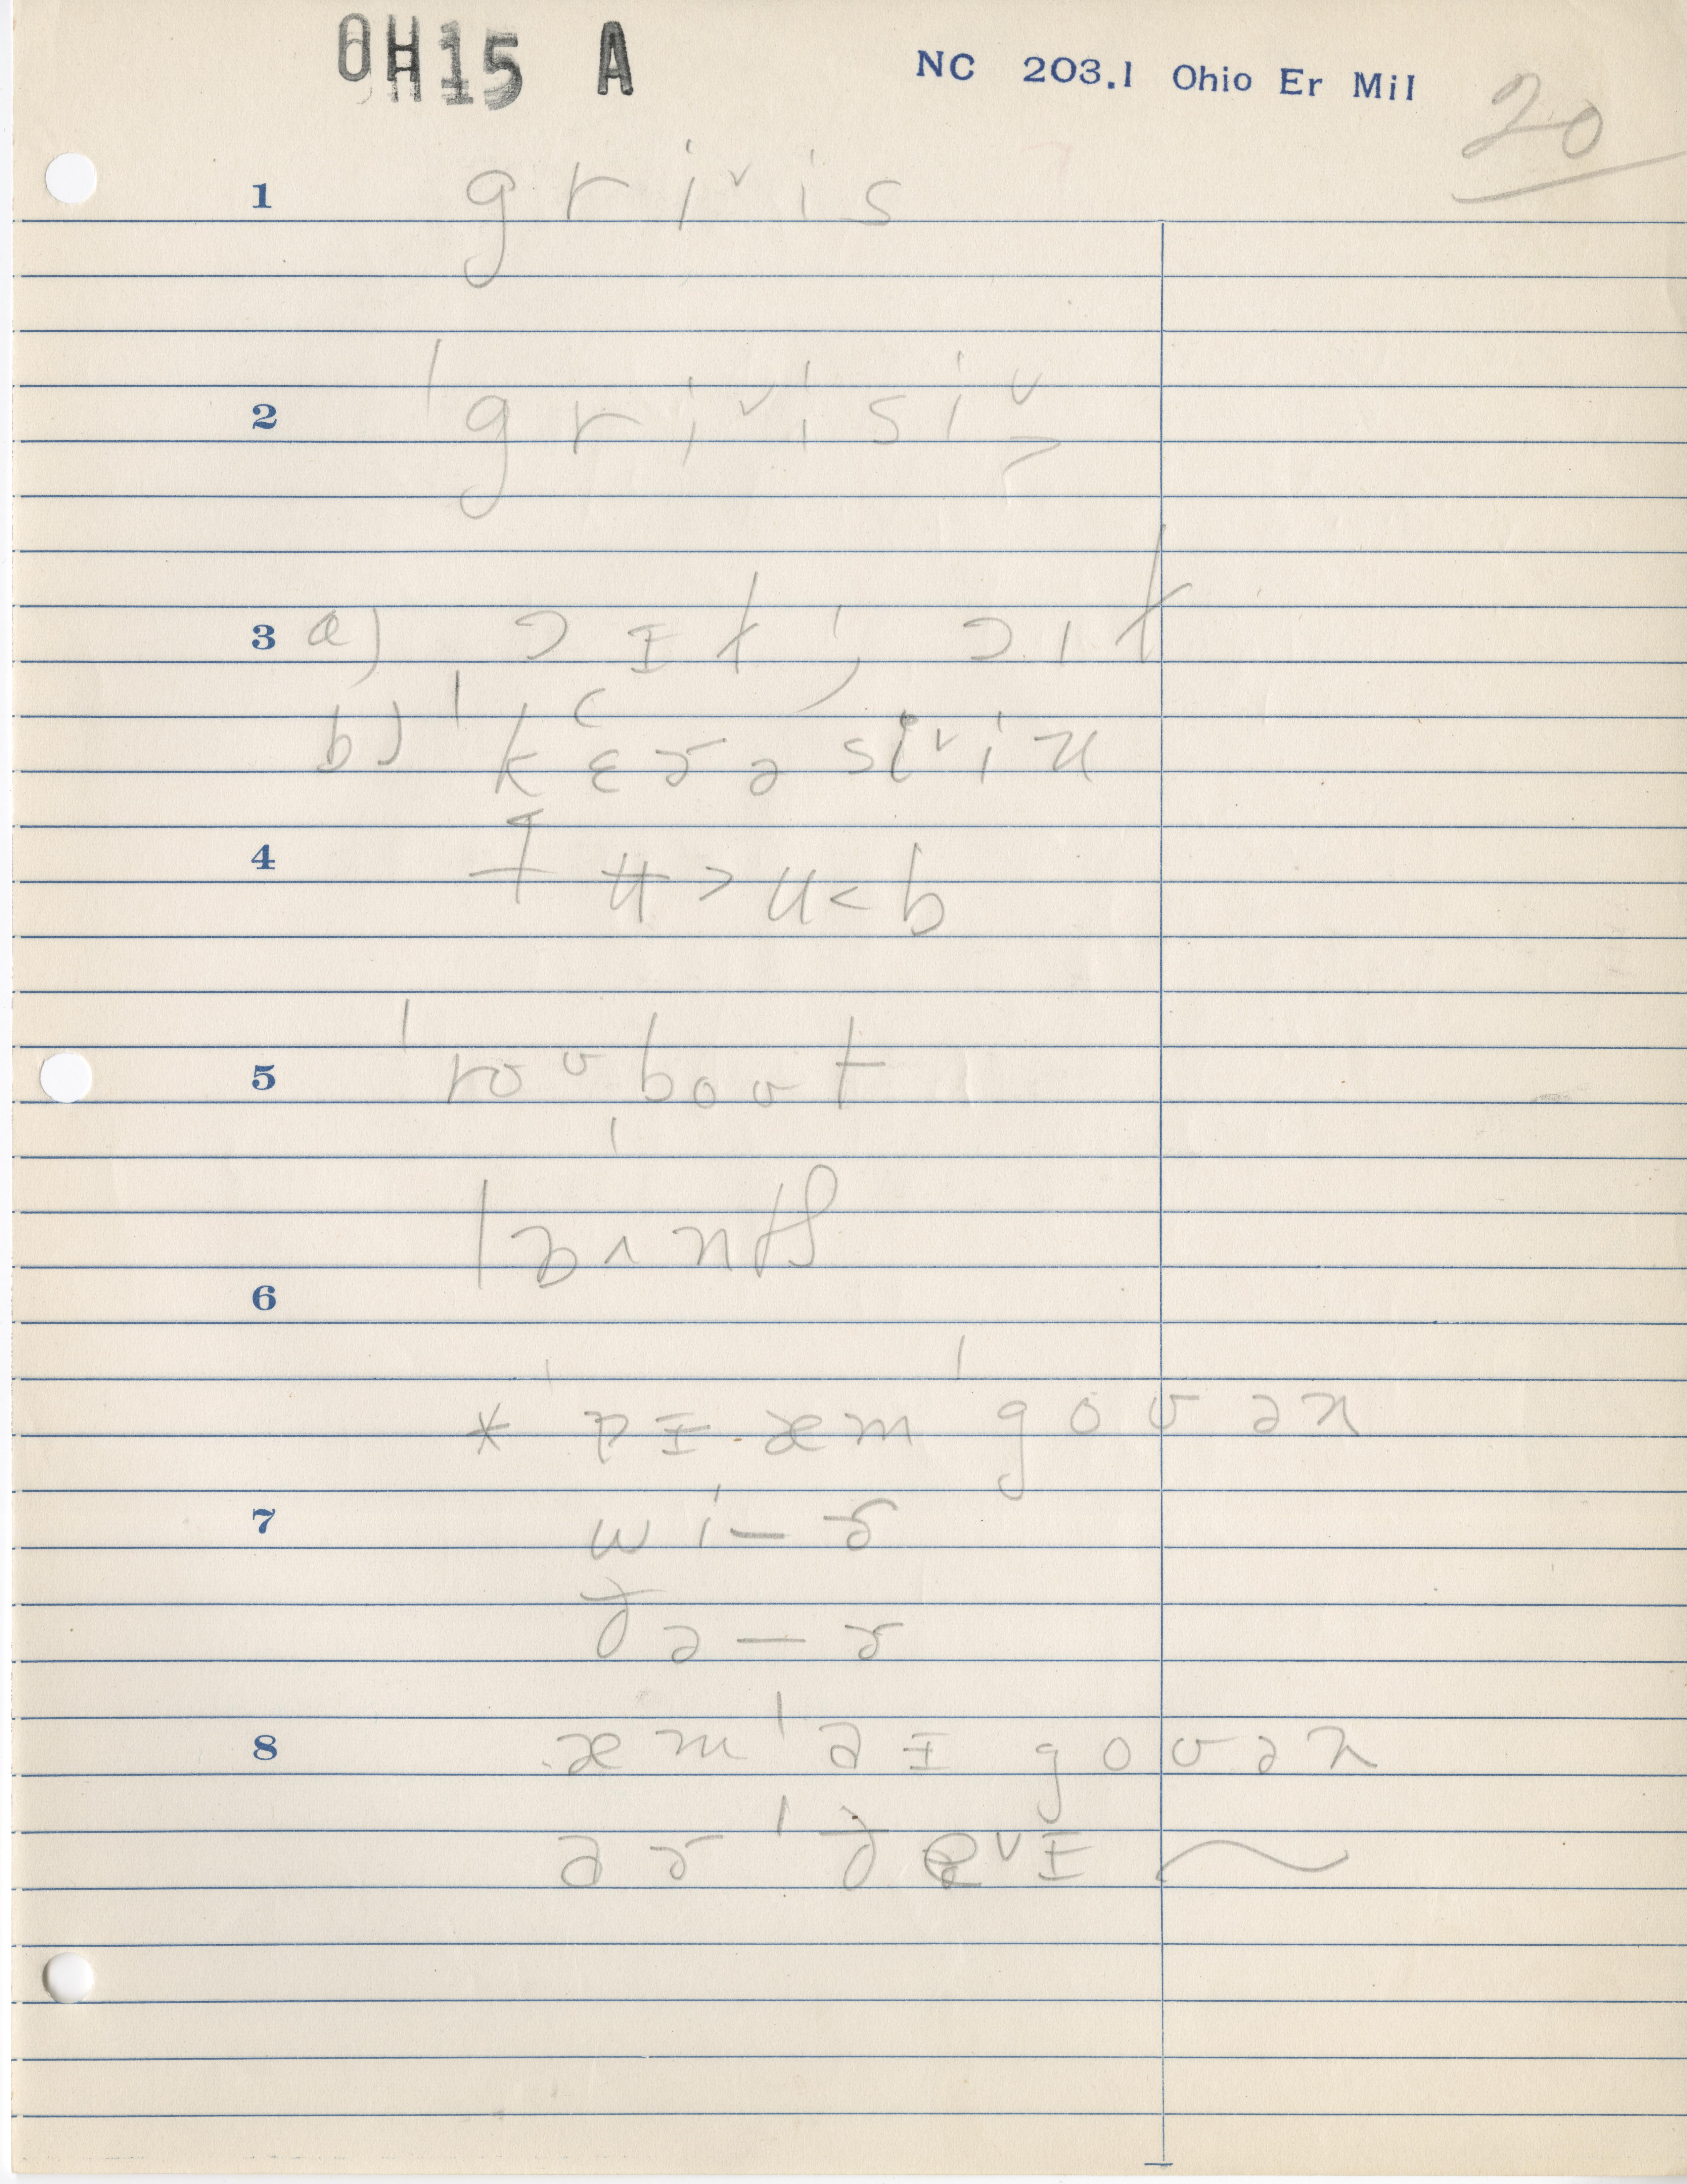 OH15 A NC 203.1 Ohio Er Mil 20
1 gri˅is
2 ˈgri˅isi˅
3 a) ɔɪt, ɔɪt
b) ˈkɛɚəsi˅in
4 ʉ˃u˂b
5 ˈroʊˌboʊt
6
* ˈpɪ. æm ˈgoʊən
7 wi–ɚ
ðə–ɚ
8 æm ˈəɪ goʊən
əɚ ˈðe˅ɪ ~